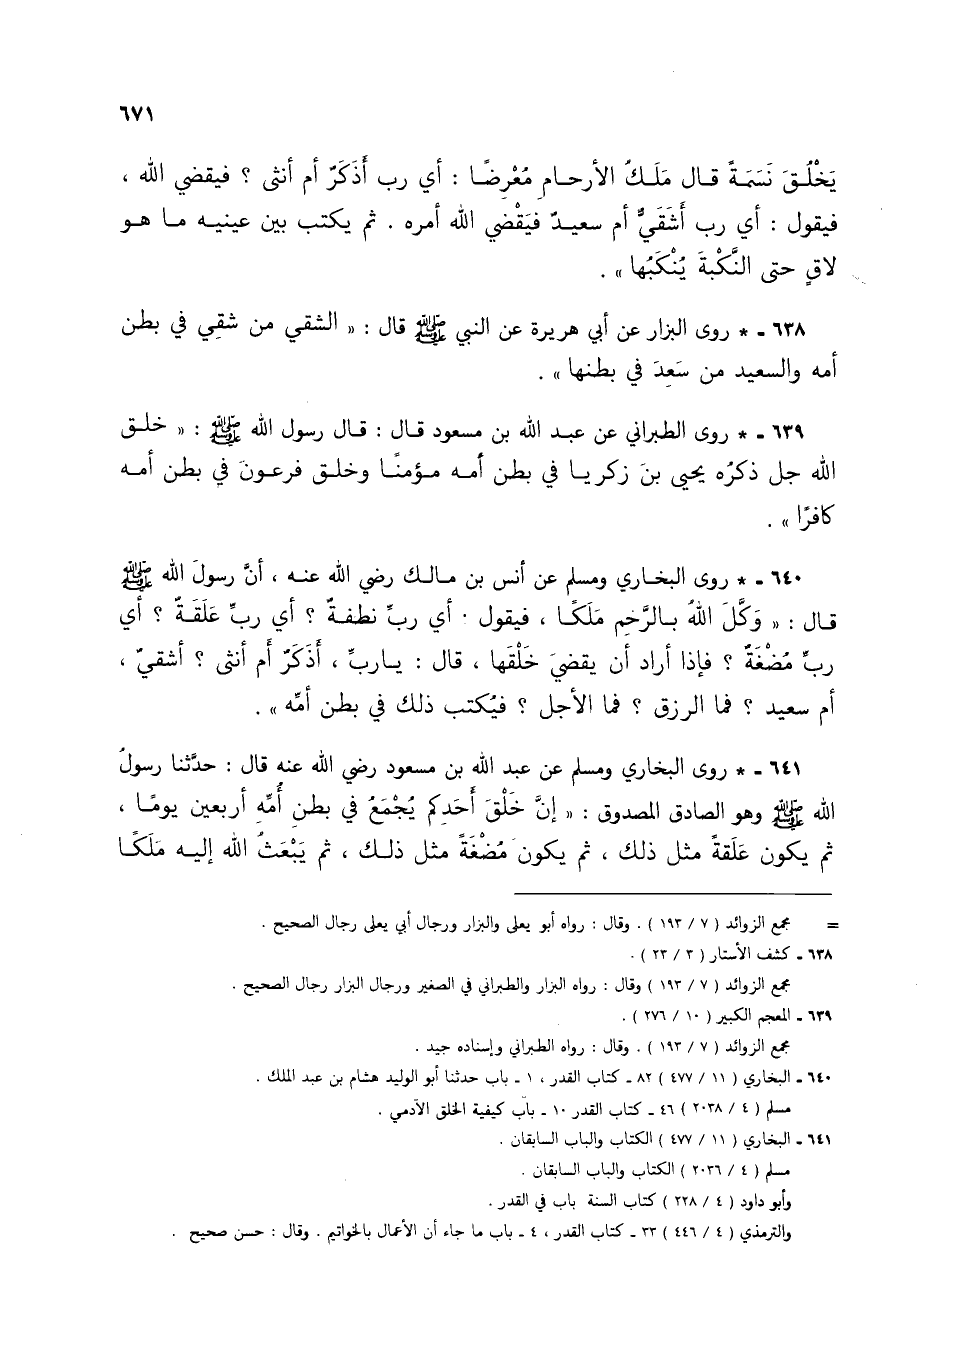 ٦٧١
يَخْلُقَ نَسَمَةً قال مَلَكُ الأرحامِ مُعْرِضًا : أي رب أَذَكَرٌ أم أنثى ؟ فيقضي الله ،
فيقول : أي رب أَشَقَيٌّ أم سعيدٌ فيَقْضِي الله أمره . ثم يكتب بين عينيه ما هو
لاقٍ حتى النَّكْبةَ يُنْكَبُها » .
٦٣٨ ـ * روى البزار عن أبي هريرة عن النبي ﷺ قال : « الشقي من شقي في بطن
أمه والسعيد من سَعِدَ في بطنها » .
٦٣٩ ـ * روى الطبراني عن عبد الله بن مسعود قال : قال رسول الله ﷺ : « خلق
الله جل ذكرُه يحيى بنَ زكريا في بطن أمه مؤمنًا وخلق فرعونَ في بطن أمه
كافرًا » .
٦٤٠ ـ * روى البخاري ومسلم عن أنس بن مالك رضي الله عنه ، أنَّ رسولَ الله ﷺ
قال : « وَكَّلَ اللهُ بالرَّحِمِ مَلَكًا ، فيقول : أي ربِّ نطفةٌ ؟ أي ربِّ عَلَقَةٌ ؟ أي
ربِّ مُضْغَةٌ ؟ فإذا أراد أن يقضيَ خَلْقَها ، قال : ياربِّ ، أَذَكَرٌ أم أنثى ؟ أشقيٌ ،
أم سعيد ؟ فما الرزق ؟ فما الأجل ؟ فيُكتب ذلك في بطن أمِّه » .
٦٤١ ـ * روى البخاري ومسلم عن عبد الله بن مسعود رضي الله عنه قال : حدَّثنا رسولُ
الله ﷺ وهو الصادق المصدوق : « إنَّ خَلْقَ أَحَدِكم يُجْمَعُ في بطنِ أُمِّه أربعين يومًا ،
ثم يكون عَلَقةً مثل ذلك ، ثم يكون مُضْغَةً مثل ذلك ، ثم يَبْعَثُ الله إليه مَلَكًا
= مجمع الزوائد ( ٧ / ١٩٣ ) . وقال : رواه أبو يعلى والبزار ورجال أبي يعلى رجال الصحيح .
٦٣٨ ـ كشف الأستار ( ٣ / ٢٣ ) .
مجمع الزوائد ( ٧ / ١٩٣ ) وقال : رواه البزار والطبراني في الصغير ورجال البزار رجال الصحيح .
٦٣٩ ـ المعجم الكبير ( ١٠ / ٢٧٦ ) .
مجمع الزوائد ( ٧ / ١٩٣ ) . وقال : رواه الطبراني وإسناده جيد .
٦٤٠ ـ البخاري ( ١١ / ٤٧٧ ) ٨٢ ـ كتاب القدر ، ١ ـ باب حدثنا أبو الوليد هشام بن عبد الملك .
مسلم ( ٤ / ٢٠٣٨ ) ٤٦ ـ كتاب القدر ١٠ ـ باب كيفية الخلق الآدمي .
٦٤١ ـ البخاري ( ١١ / ٤٧٧ ) الكتاب والباب السابقان .
مسلم ( ٤ / ٢٠٣٦ ) الكتاب والباب السابقان .
وأبو داود ( ٤ / ٢٢٨ ) كتاب السنة باب في القدر .
والترمذي ( ٤ / ٤٤٦ ) ٣٣ ـ كتاب القدر ، ٤ ـ باب ما جاء أن الأعمال بالخواتيم . وقال : حسن صحيح .